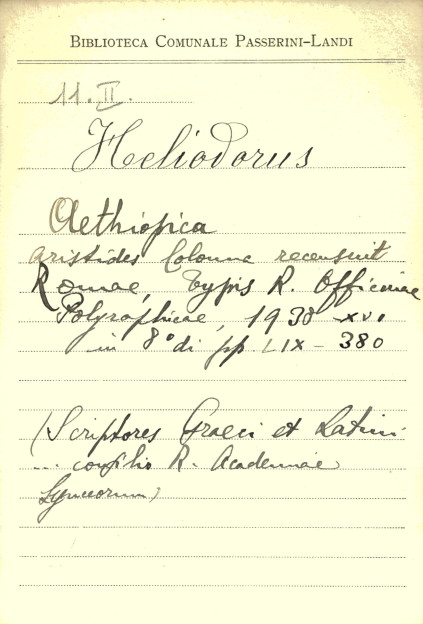 BIBLIOTECA COMUNALE PASSERINI-LANDI
11. II.
Heliodorus
Aethiopica
aristides Colonna recensuit
Romae, typis R. Officinae
Polygraphicae, 1938 XVI
in 8° di pp LIX - 380
(Scriptores Graeci et Latini
... consilio R. Academiae
Lynceorum)